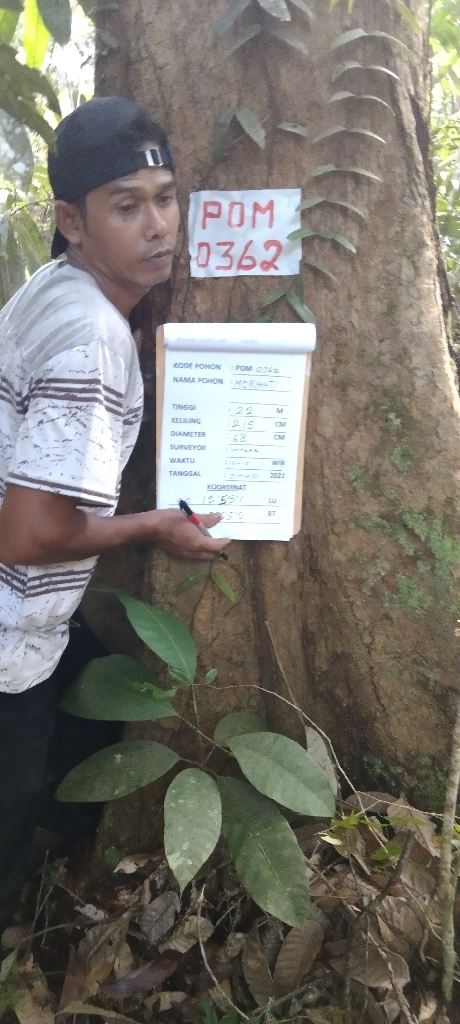 POM
0362
KODE POHON : POM 0362
NAMA POHON : MERANTI
TINGGI : 22 M
KELILING : 215 CM
DIAMETER : 68 CM
SURVEYOR :
WAKTU : WIB
TANGGAL : 2021
KOORDINAT
LU
BT